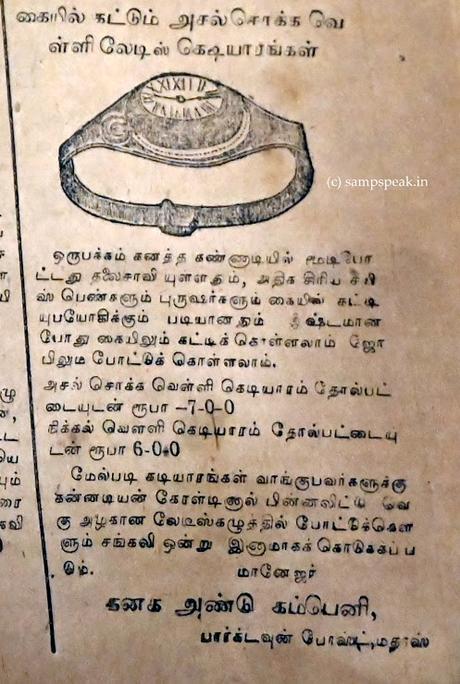 கையில் கட்டும் அசல்சொக்க வெ
ள்ளி லேடிஸ் கெடியாரங்கள்
XI XII I II
(c) sampspeak.in
ஒருபக்கம் கனத்த கண்ணாடியில் மூடி போ
ட்டது தலைசாவி யுள்ளதும், அதிக கிரிய
ஸ் பெண்களும் புருஷர்களும் கையில் கட்டி
யுபயோகிக்கும் படியானதும் இஷ்டமான
போது கையிலும் கட்டிக் கொள்ளலாம் ஜோ
பிலும் போட்டுக் கொள்ளலாம்.
அசல் சொக்க வெள்ளி கெடியாரம் தோல்பட்
டையுடன் ரூபா –7-0-0
நிக்கல் வெள்ளி கெடியாரம் தோல்பட்டையு
டன் ரூபா 6-0-0
மேல்படி கடியாரங்கள் வாங்குபவர்களுக்கு
கன்னடியன் கோள்டினால் பின்னலிட்ட வெ
கு அழகான லேடீஸ்கழுத்தில் போட்டுக்கொள
ளும் சங்கலி ஒன்று இனாமாகக் கொடுக்கப்ப
டும்.
மானேஜர்
கனக அண்டு கம்பெனி,
பார்க்டவுன் போஸ்ட், மதராஸ்